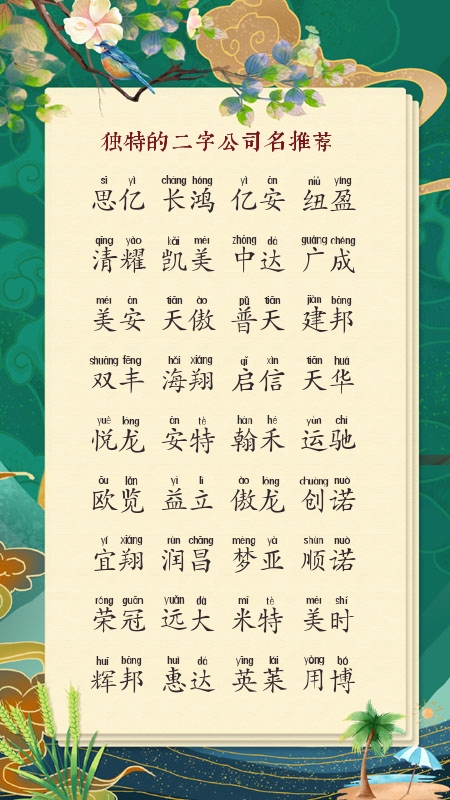 独特的二字公司名推荐
sī yì cháng hóng yì ān niǔ yíng
思亿 长鸿 亿安 纽盈
qīng yào kǎi měi zhōng dá guǎng chéng
清耀 凯美 中达 广成
měi ān tiān ào pǔ tiān jiàn bāng
美安 天傲 普天 建邦
shuāng fēng hǎi xiáng qǐ xìn tiān huá
双丰 海翔 启信 天华
yuè lóng ān tè hàn hé yùn chí
悦龙 安特 翰禾 运驰
ōu lǎn yì lì ào lóng chuàng nuò
欧览 益立 傲龙 创诺
yí xiáng rùn chāng mèng yà shùn nuò
宜翔 润昌 梦亚 顺诺
róng guān yuǎn dà mǐ tè měi shí
荣冠 远大 米特 美时
huī bāng huì dá yīng lái yòng bó
辉邦 惠达 英莱 用博